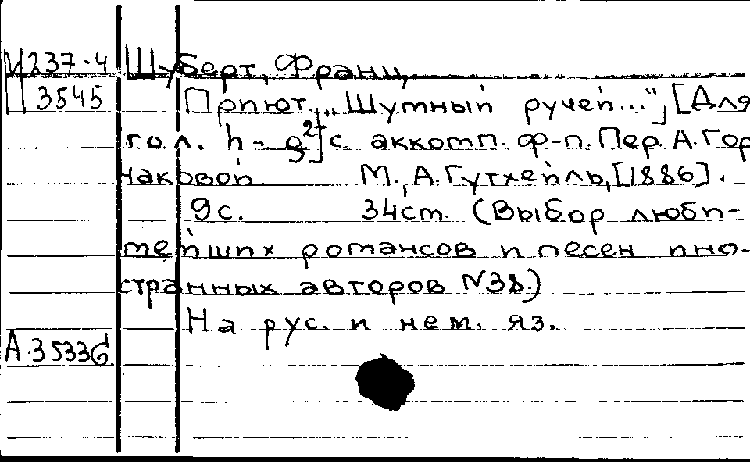 М237-4 Шуберт, Франц.
П3545 Приют. „Шумный ручей...", [Для
гол. h - g²] с аккомп. ф-п. Пер. А. Гор
чаковой М., А. Гутхейль, [1886].
9с. 34см. (Выбор люби-
мейших романсов и песен ино-
странных авторов №38.)
На рус. и нем. яз.
А.35336